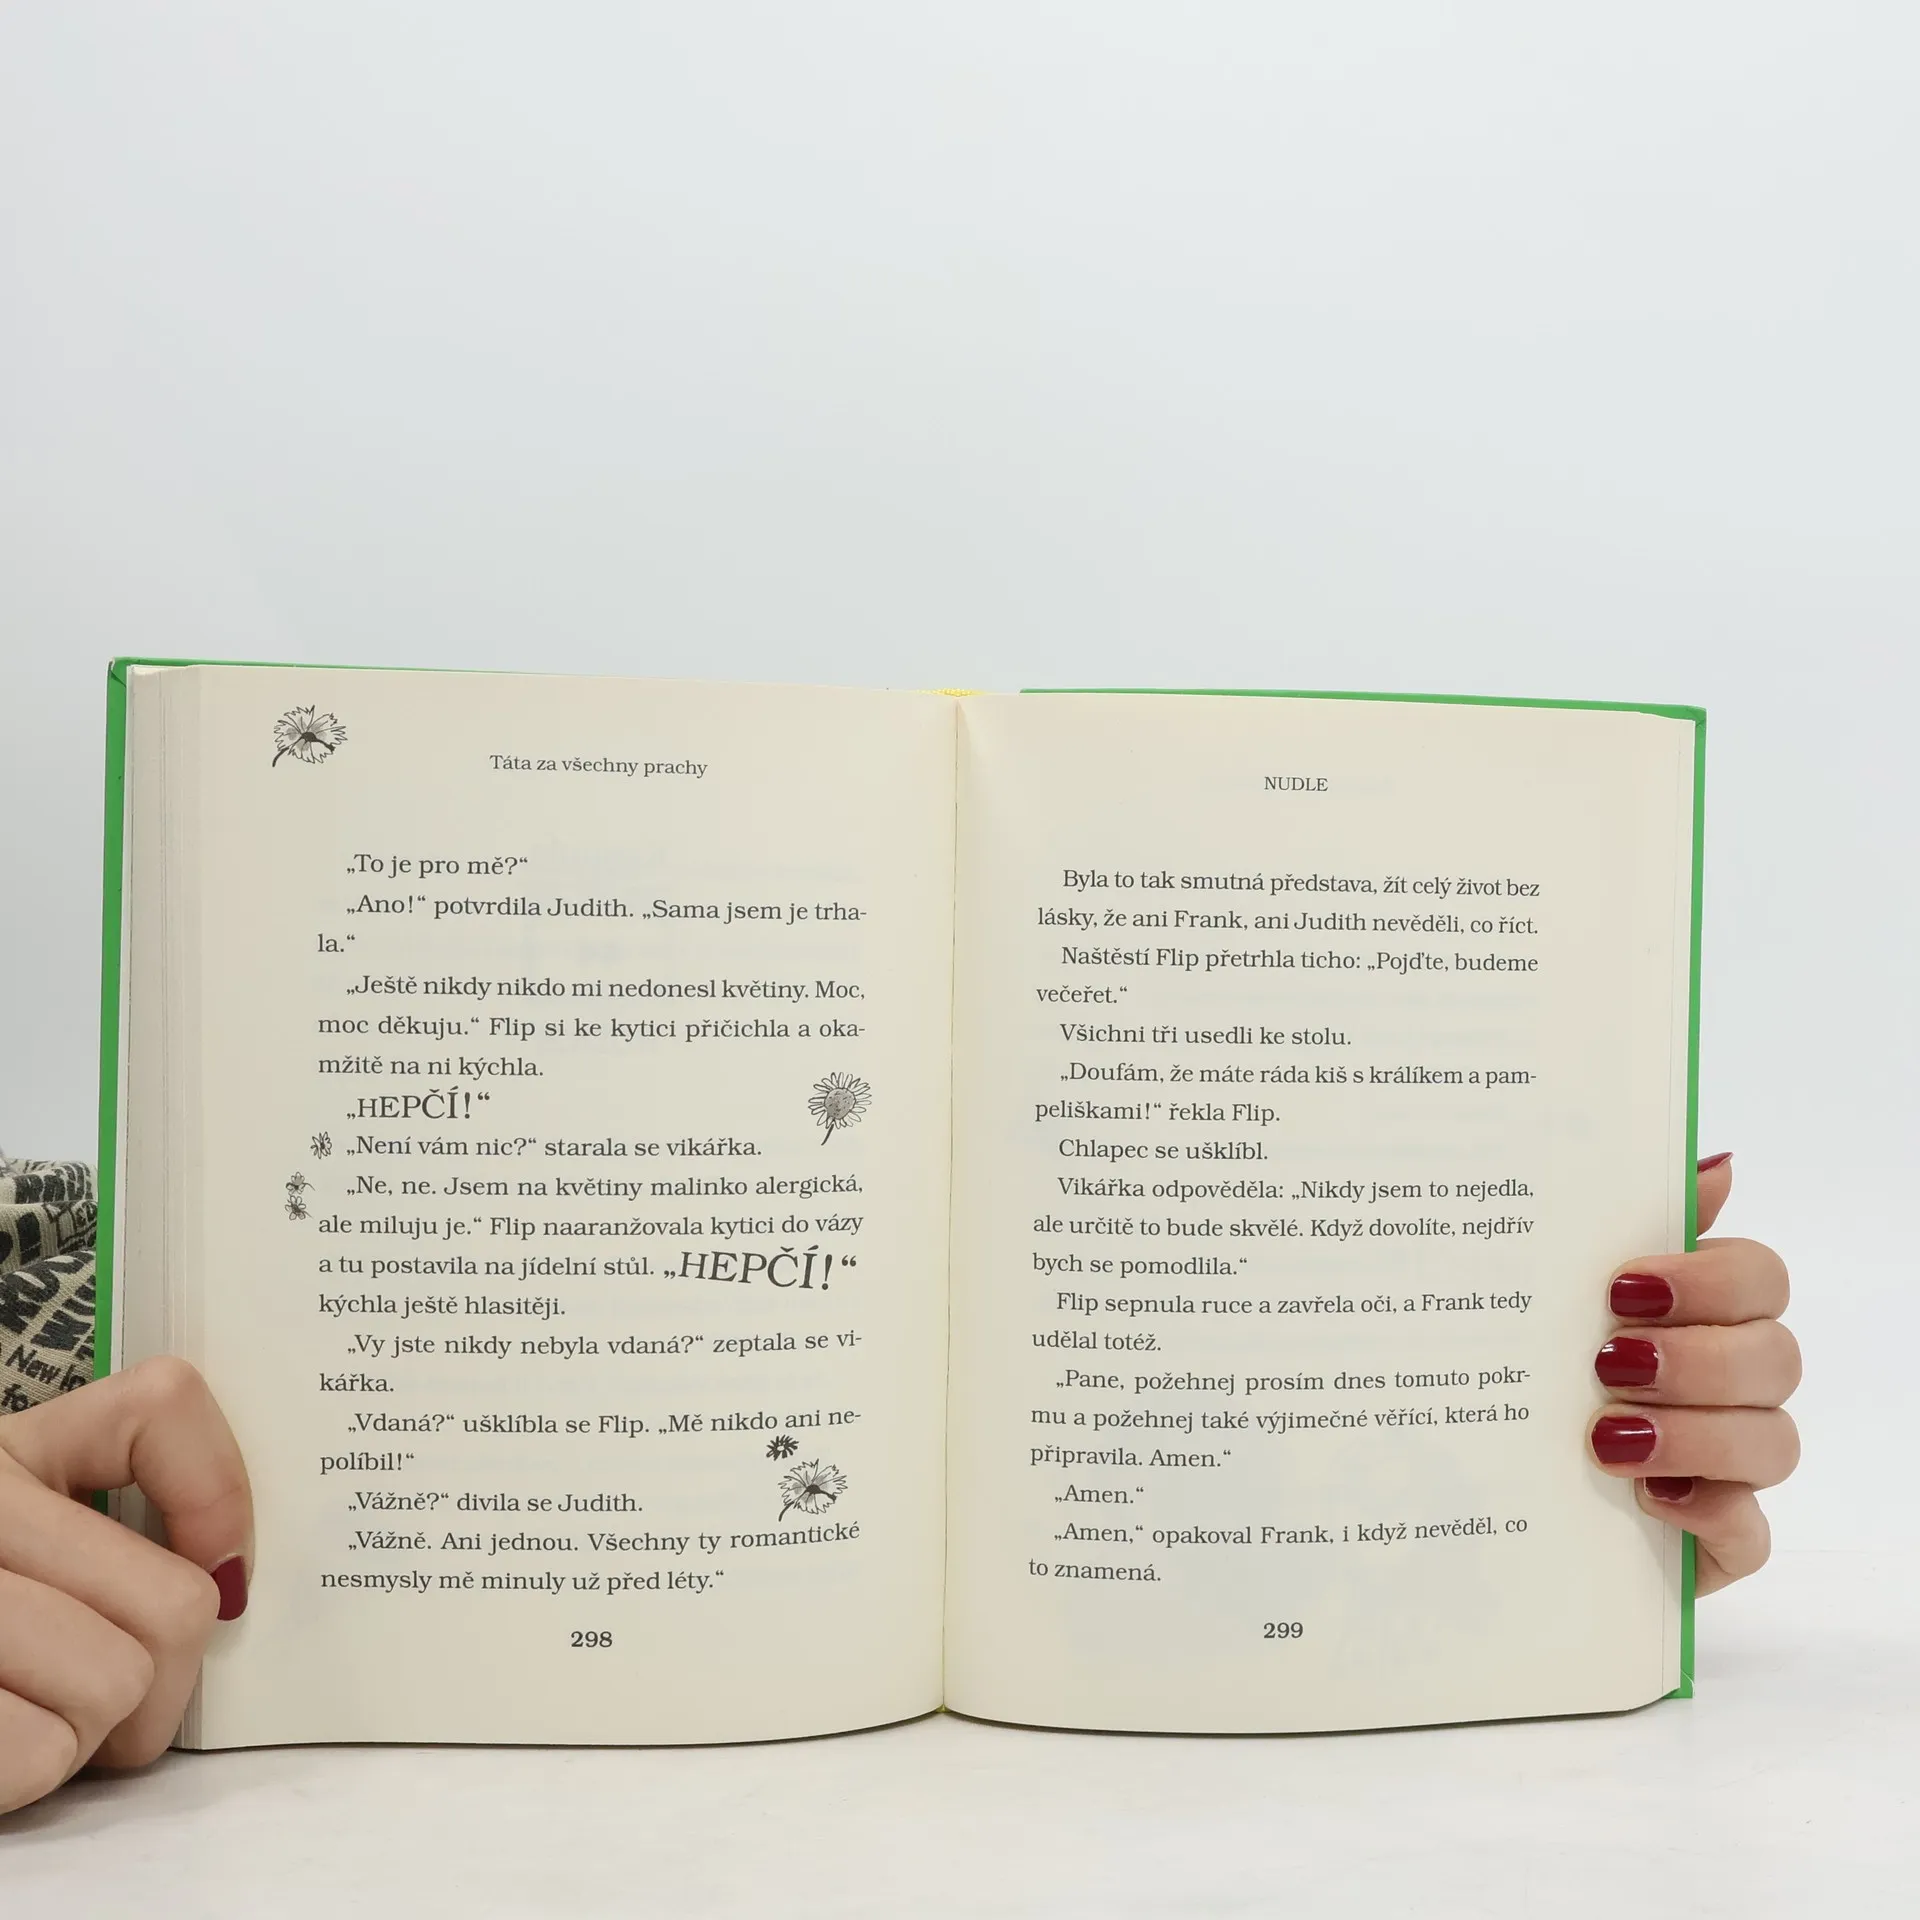 Táta za všechny prachy
„To je pro mě?“
„Ano!“ potvrdila Judith. „Sama jsem je trha-
la.“
„Ještě nikdy nikdo mi nedonesl květiny. Moc,
moc děkuju.“ Flip si ke kytici přičichla a oka-
mžitě na ni kýchla.
„HEPČÍ!“
„Není vám nic?“ starala se vikářka.
„Ne, ne. Jsem na květiny malinko alergická,
ale miluju je.“ Flip naaranžovala kytici do vázy
a tu postavila na jídelní stůl. „HEPČÍ!“
kýchla ještě hlasitěji.
„Vy jste nikdy nebyla vdaná?“ zeptala se vi-
kářka.
„Vdaná?“ ušklíbla se Flip. „Mě nikdo ani ne-
políbil!“
„Vážně?“ divila se Judith.
„Vážně. Ani jednou. Všechny ty romantické
nesmysly mě minuly už před léty.“
298
NUDLE
Byla to tak smutná představa, žít celý život bez
lásky, že ani Frank, ani Judith nevěděli, co říct.
Naštěstí Flip přetrhla ticho: „Pojďte, budeme
večeřet.“
Všichni tři usedli ke stolu.
„Doufám, že máte ráda kiš s králíkem a pam-
peliškami!“ řekla Flip.
Chlapec se ušklíbl.
Vikářka odpověděla: „Nikdy jsem to nejedla,
ale určitě to bude skvělé. Když dovolíte, nejdřív
bych se pomodlila.“
Flip sepnula ruce a zavřela oči, a Frank tedy
udělal totéž.
„Pane, požehnej prosím dnes tomuto pokr-
mu a požehnej také výjimečné věřící, která ho
připravila. Amen.“
„Amen.“
„Amen,“ opakoval Frank, i když nevěděl, co
to znamená.
299
New